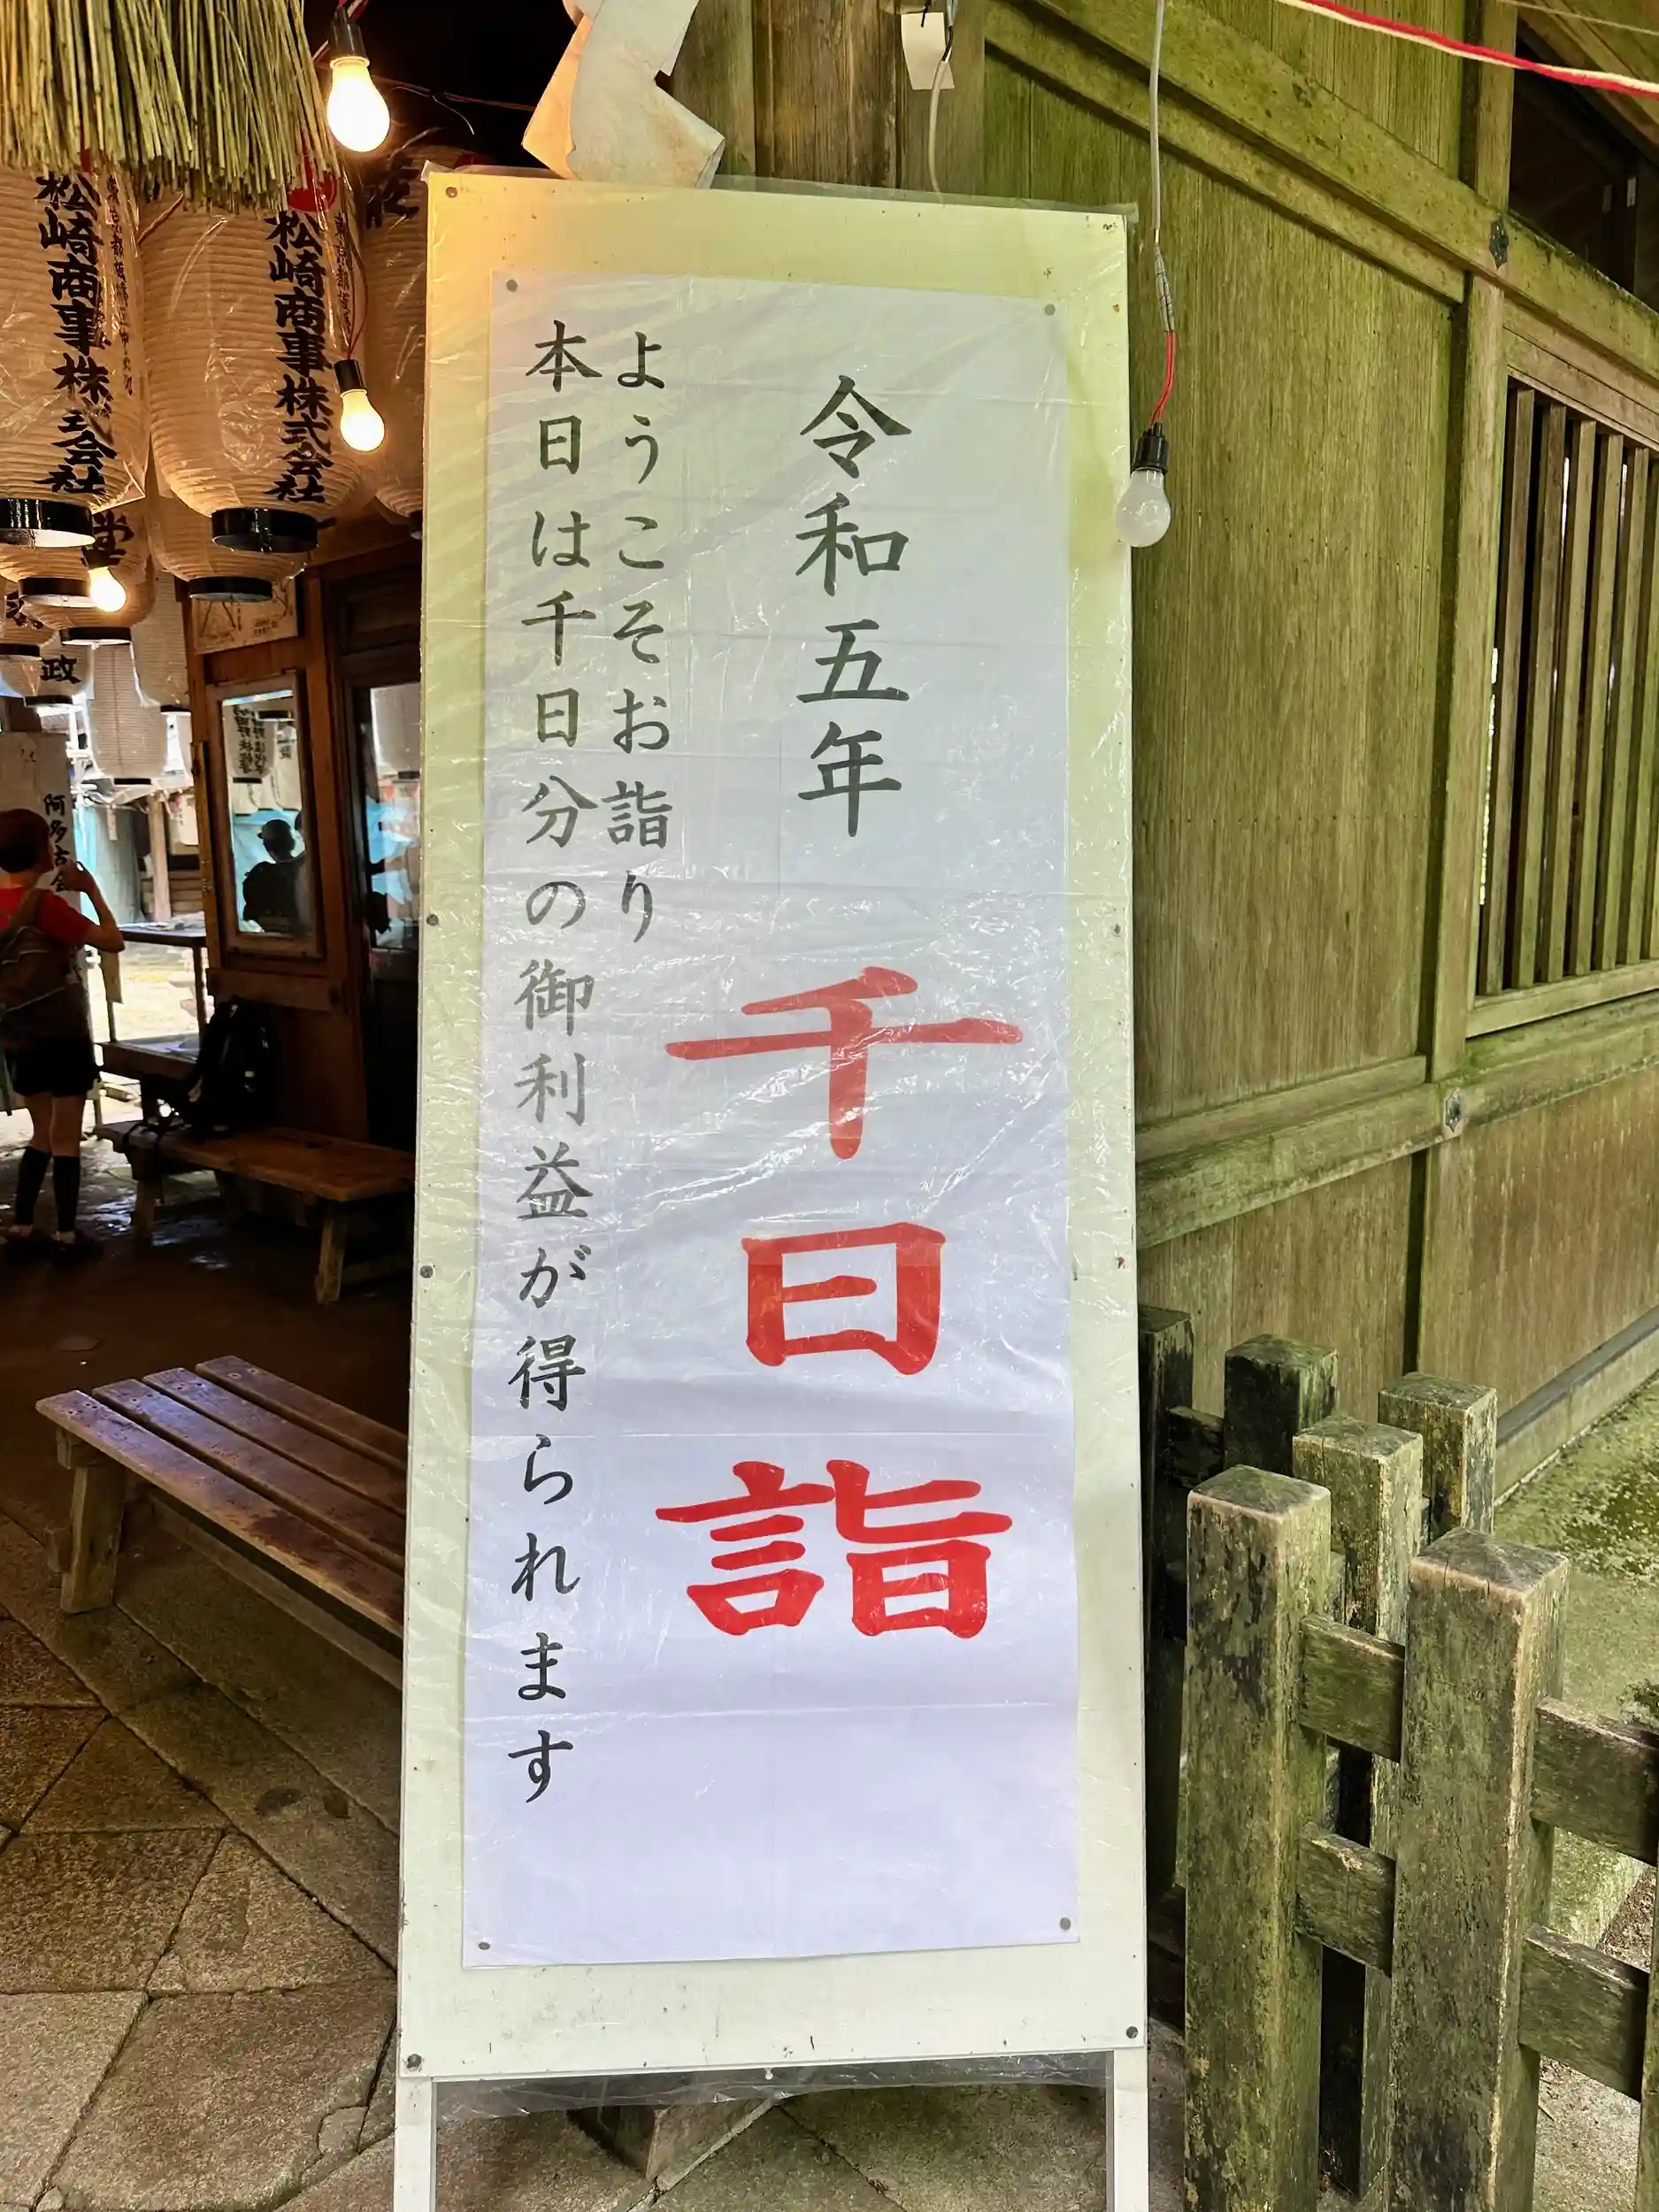 令和五年 千日詣
ようこそお詣り
本日は千日分の御利益が得られます
松崎商事株式会社
松崎商事株式会社
政
阿多古会